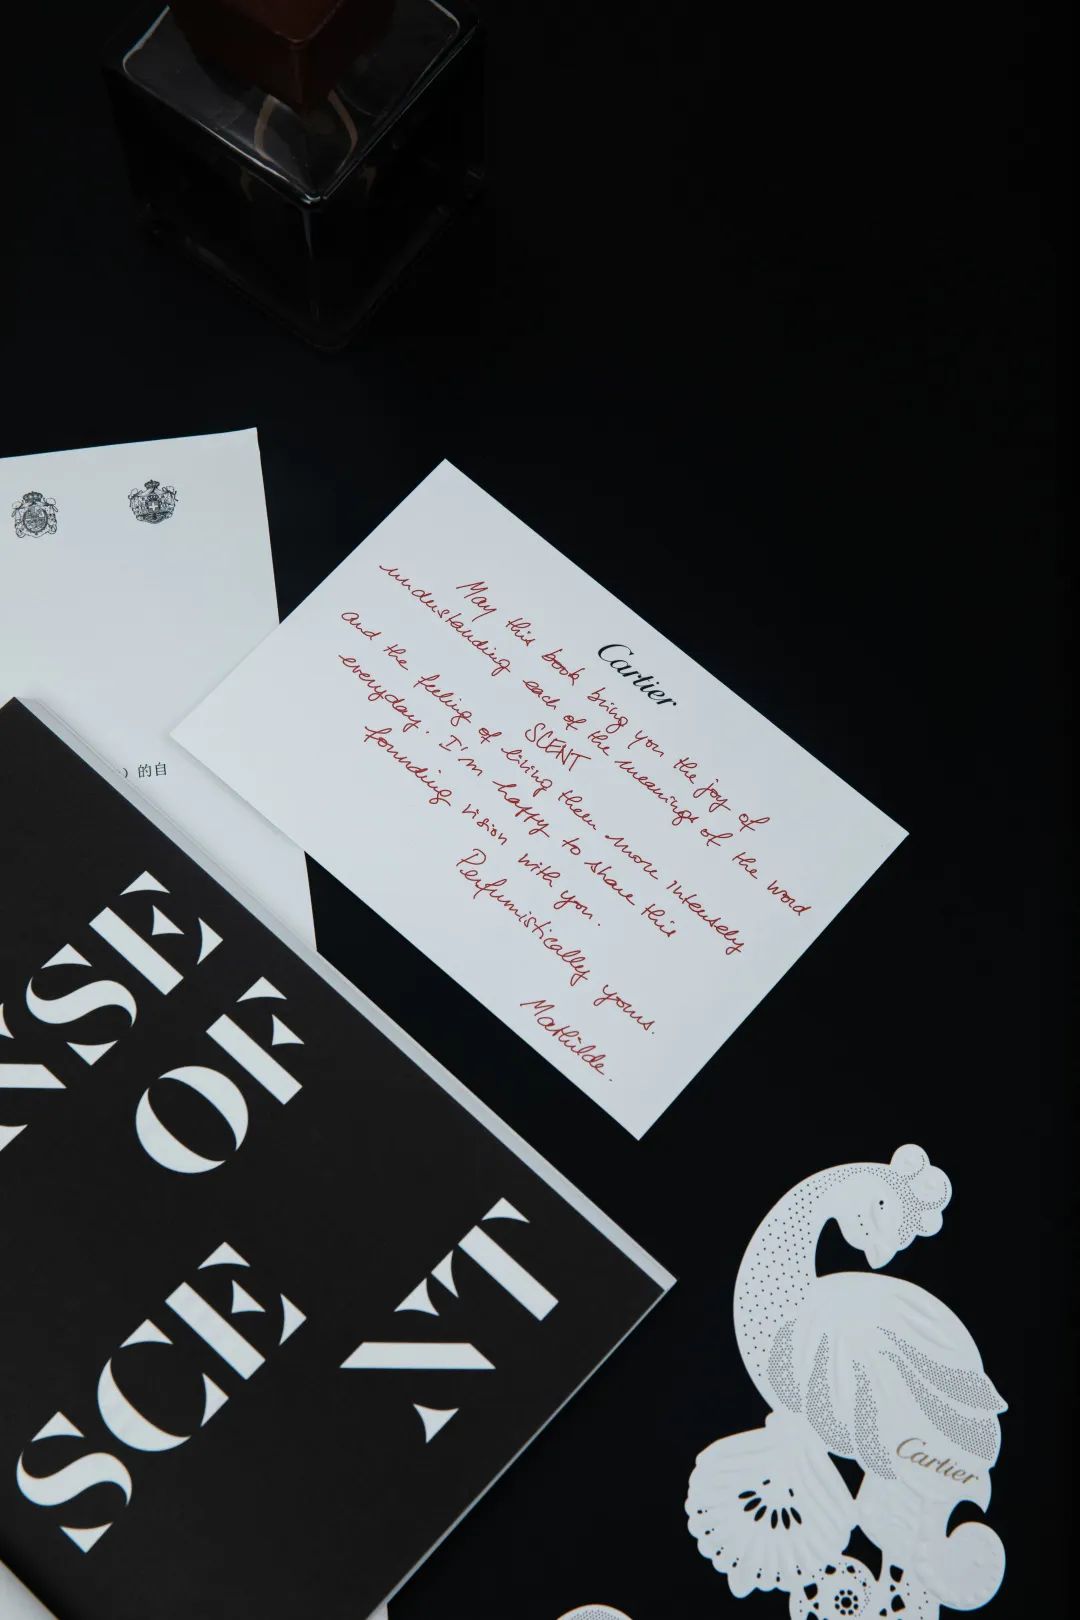 Cartier
May this book bring you the joy of
understanding each of the meanings of the word
SCENT
and the feeling of living them more intensely
everyday. I'm happy to share this
founding vision with you.
Perfumistically yours.
Mathilde.
）的自
NSE
OF
SCENT
Cartier